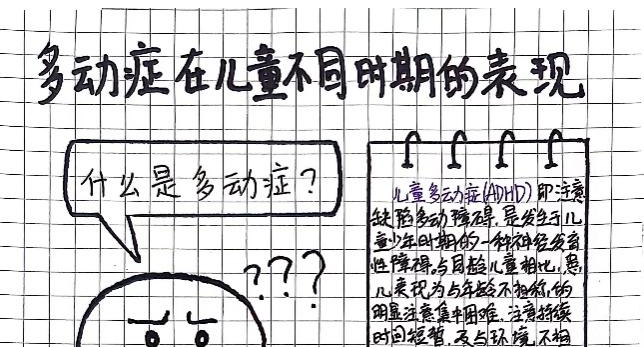 多动症在儿童不同时期的表现
什么是多动症？
???
儿童多动症(ADHD)即注意
缺陷多动障碍,是发生于儿
童少年时期的一种神经发育
性障碍。与同龄儿童相比,患
儿表现为与年龄不相称的
明显注意集中困难、注意持续
时间短暂,及与环境不相